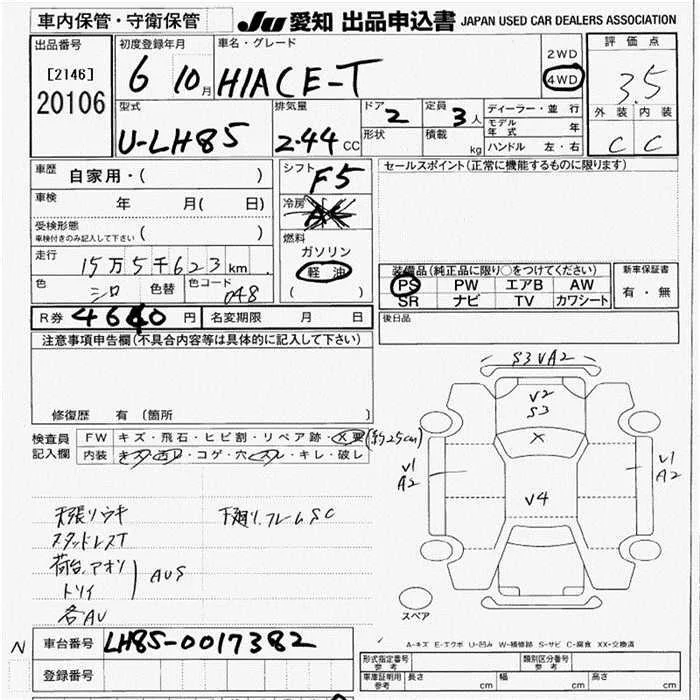 車内保管・守衛保管
JU 愛知 出品申込書 JAPAN USED CAR DEALERS ASSOCIATION
出品番号
[2146]
20106
初度登録年月
6 10 月
車名・グレード
HIACE-T
2WD
4WD
評価点
3.5
外装 内装
C C
型式
U-LH85
排気量
2.44 CC
ドア
2
形状
定員
3 人
積載
kg
ディーラー・並行
モデル年式 年
ハンドル 左・右
車歴 自家用・( )
車検 年 月( 日)
受検形態
車検付きのみ記入して下さい ( )
走行
15万5千623 km
色 シロ 色替 色コード 048
シフト F5
冷房 AC
燃料
ガソリン
軽油
( )
セールスポイント(正常に機能するものに限ります)
装備品(純正品に限り○をつけてください)
PS PW エアB AW
SR ナビ TV カワシート
新車保証書
有・無
R券 4640 円 名変期限 月 日
後日品
注意事項申告欄(不具合内容等は具体的に記入して下さい)
修復歴 有 (箇所 )
検査員
記入欄
FW キズ・飛石・ヒビ割・リペア跡・X要 (約25cm)
内装 キズ・汚レ・コゲ・穴・スレ・キレ・破レ
天張リウキ
スタットレスT
荷台、アオリ
トリイ
AUS
各AU
下廻リ、フレームSC
S3VA2
V2
S3
X
V1
A2
V4
V1
A2
スペア
A-キズ E-エクボ U-凹み W-補修跡 S-サビ C-腐食 XX-交換済
N
車台番号 LH85-0017382
登録番号
形式指定番号
参考
類別区分番号
参考
車庫証明用
参考
長さ cm 幅 cm 高さ cm